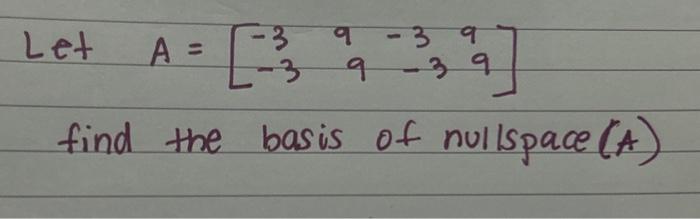 Let A = [-3 9 -3 9
-3 9 -3 9]
find the basis of nullspace(A)